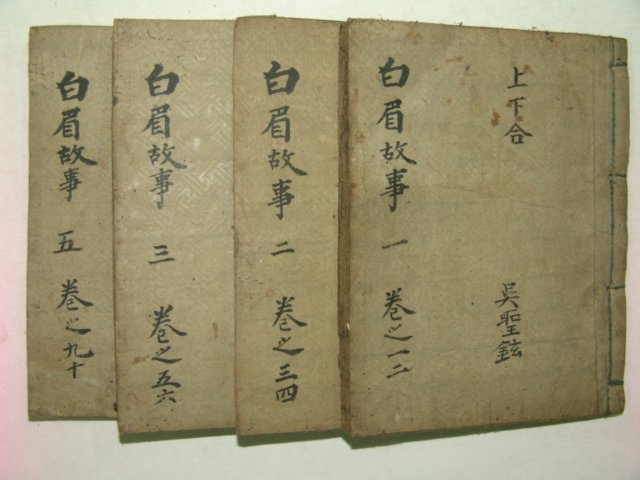 上下合
吳聖鉉
白眉故事 一 卷之一二
白眉故事 二 卷之三四
白眉故事 三 卷之五六
白眉故事 五 卷之九十